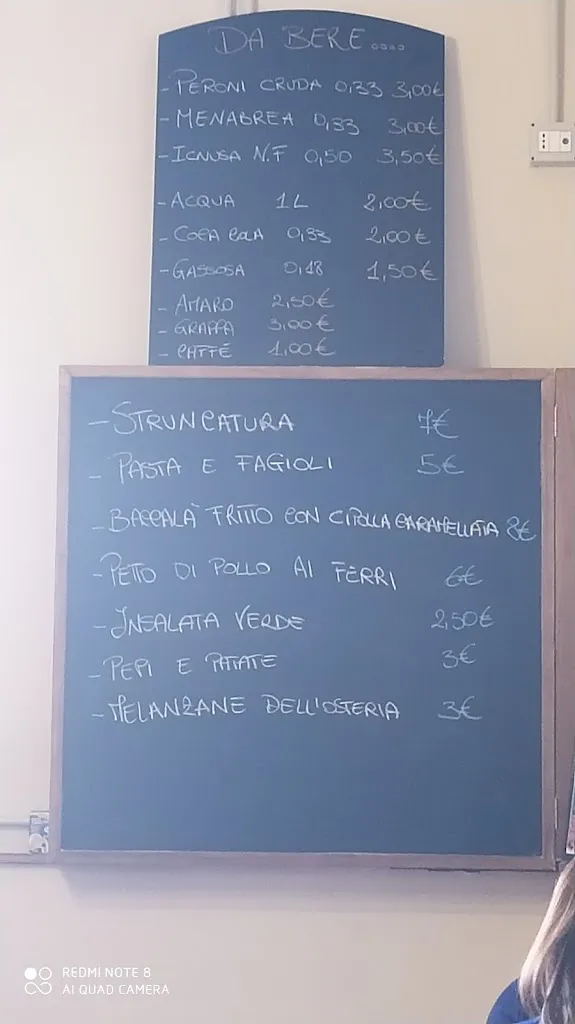 DA BERE....
- PERONI CRUDA 0,33 3,00€
- MENABREA 0,33 3,00€
- ICNUSA N.F 0,50 3,50€
- ACQUA 1L 2,00€
- COCA COLA 0,33 2,00€
- GASSOSA 0,18 1,50€
- AMARO 2,50€
- GRAPPA 3,00€
- CAFFÉ 1,00€
- STRUNCATURA 7€
- PASTA E FAGIOLI 5€
- BACCALÀ FRITTO CON CIPOLLA CARAMELLATA 8€
- PETTO DI POLLO AI FERRI 6€
- INSALATA VERDE 2,50€
- PEPI E PATATE 3€
- MELANZANE DELL'OSTERIA 3€
REDMI NOTE 8
AI QUAD CAMERA